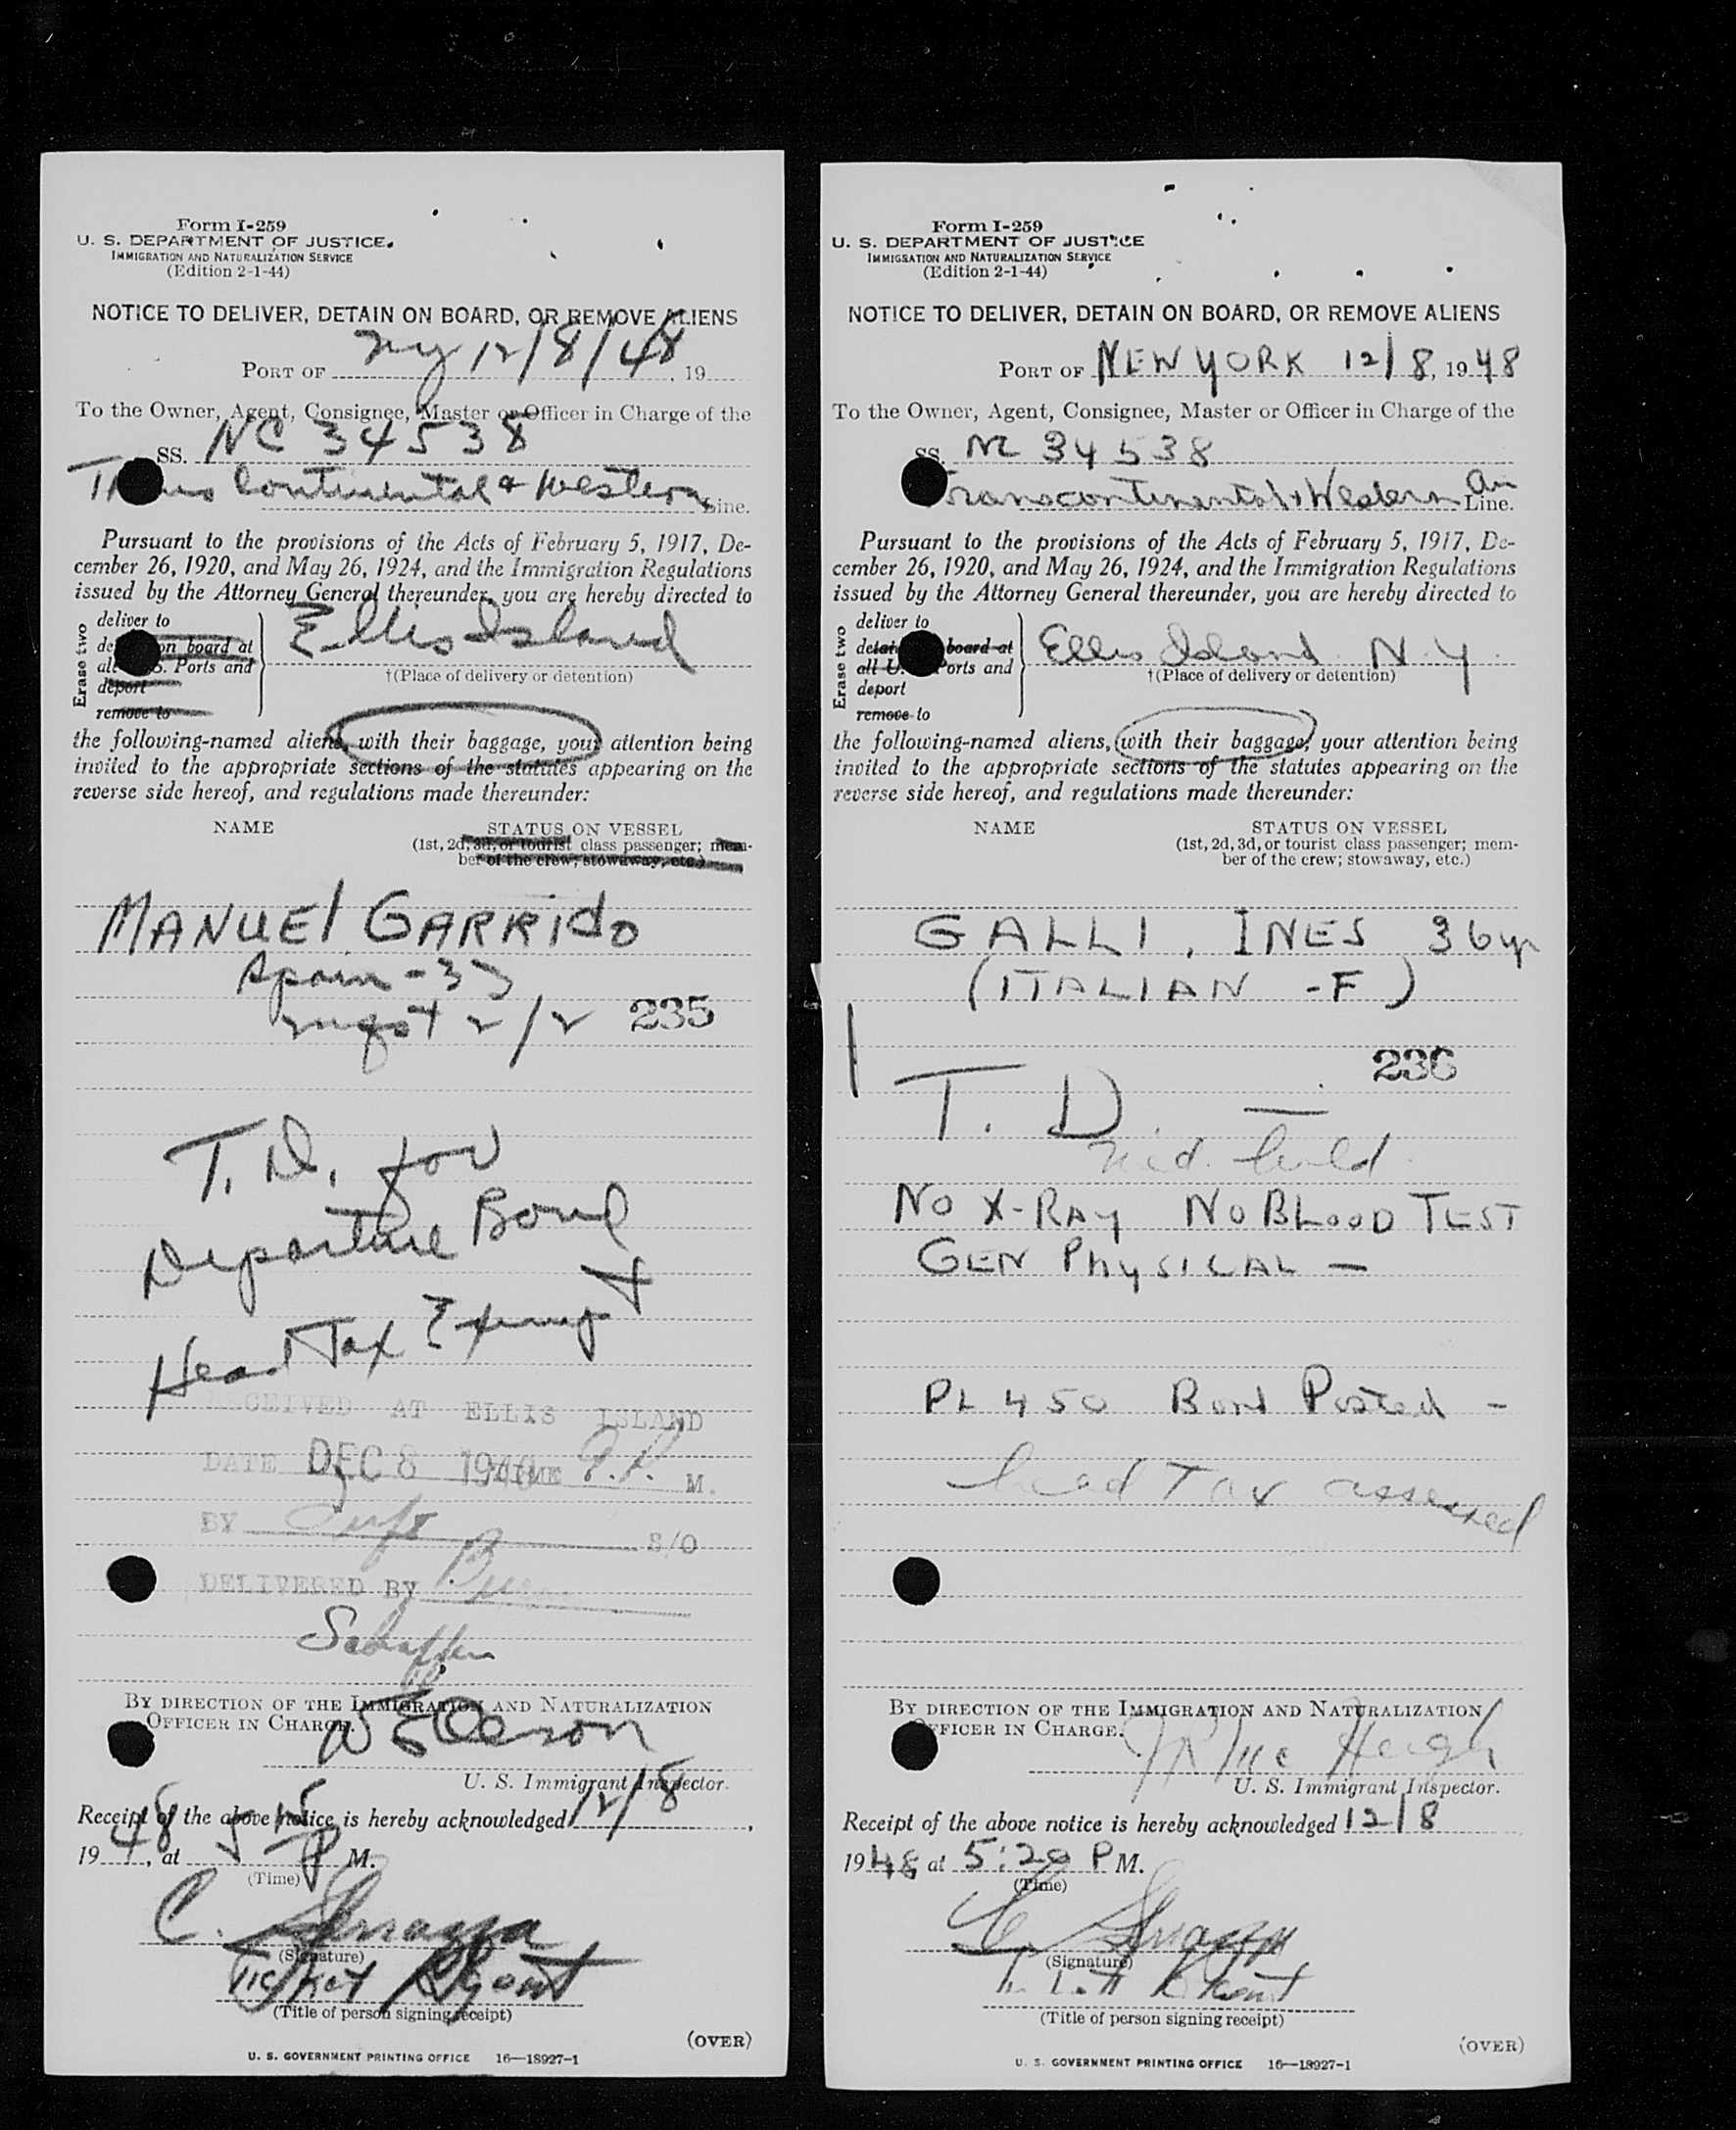 Form I-259
U. S. DEPARTMENT OF JUSTICE
IMMIGRATION AND NATURALIZATION SERVICE
(Edition 2-1-44)
NOTICE TO DELIVER, DETAIN ON BOARD, OR REMOVE ALIENS
PORT OF NY 12/8/48, 19
To the Owner, Agent, Consignee, Master or Officer in Charge of the
SS. NC 34538
Trans Continental & Western Line.
Pursuant to the provisions of the Acts of February 5, 1917, De-
cember 26, 1920, and May 26, 1924, and the Immigration Regulations
issued by the Attorney General thereunder, you are hereby directed to
Erase two
deliver to
on board at
Ports and
deport
remove to
Ellis Island
†(Place of delivery or detention)
the following-named aliens, with their baggage, your attention being
invited to the appropriate sections of the statutes appearing on the
reverse side hereof, and regulations made thereunder:
NAME STATUS ON VESSEL
(1st, 2d, 3d, or tourist class passenger; mem-
ber of the crew; stowaway, etc.)
MANUEL GARRIDO
Spain - 33
2/2 235
T. D. for
Departure Bond
Head Tax Exempt
RECEIVED AT ELLIS ISLAND
DATE DEC 8 TIME P. M.
BY S/O
DELIVERED BY
BY DIRECTION OF THE IMMIGRATION AND NATURALIZATION
OFFICER IN CHARGE.
U. S. Immigrant Inspector.
Receipt of the above notice is hereby acknowledged 12/8,
1948, at 5 15 P M.
(Time)
C.
(Signature)
Ticket Agent
(Title of person signing receipt)
(OVER)
U. S. GOVERNMENT PRINTING OFFICE 16—18927-1
Form I-259
U. S. DEPARTMENT OF JUSTICE
IMMIGRATION AND NATURALIZATION SERVICE
(Edition 2-1-44)
NOTICE TO DELIVER, DETAIN ON BOARD, OR REMOVE ALIENS
PORT OF NEW YORK 12/8, 1948
To the Owner, Agent, Consignee, Master or Officer in Charge of the
SS. NC 34538
Transcontinental & Western Air Line.
Pursuant to the provisions of the Acts of February 5, 1917, De-
cember 26, 1920, and May 26, 1924, and the Immigration Regulations
issued by the Attorney General thereunder, you are hereby directed to
Erase two
deliver to
detain board at
all U. Ports and
deport
remove to
Ellis Island N.Y.
†(Place of delivery or detention)
the following-named aliens, with their baggage, your attention being
invited to the appropriate sections of the statutes appearing on the
reverse side hereof, and regulations made thereunder:
NAME STATUS ON VESSEL
(1st, 2d, 3d, or tourist class passenger; mem-
ber of the crew; stowaway, etc.)
GALLI, INES 36 yr
(ITALIAN - F)
236
T. D. —
Med. hold.
NO X-RAY NO BLOOD TEST
GEN PHYSICAL —
PL 450 Bond Posted -
head Tax assessed
BY DIRECTION OF THE IMMIGRATION AND NATURALIZATION
OFFICER IN CHARGE.
U. S. Immigrant Inspector.
Receipt of the above notice is hereby acknowledged 12/8
1948 at 5:20 P M.
(Time)
C.
(Signature)
(Title of person signing receipt)
(OVER)
U. S. GOVERNMENT PRINTING OFFICE 16—18927-1